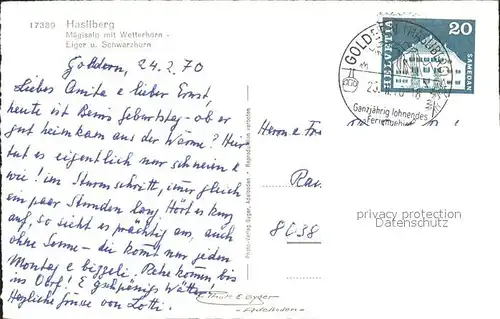 17389 Hasliberg
Mägisalp mit Wetterhorn -
Eiger u. Schwarzhorn
Goldern, 24.2.70
Liebes Anita & lieber Ernst,
heute ist Bernis Geburtstag - ob er
gut heimkam aus der Wärme? Hier
tut es eigentlich nur schneien &
wie! im Sturmschritt, immer gleich
ein paar Stunden lang. Hört es kurz
auf, so sieht es prächtig am, auch
ohne Sonne - die kommt nur jeden
Montag e bizzeli. Rehe kommen bis
ins Dorf! E Wätter!
Herzliche Grüsse von Lotti.
Photo-Verlag Gyger, Adelboden - Reproduktion verboten
GOLDERN (HASLIBERG)
23
Ganzjährig lohnendes
Feriengebiet
HELVETIA
20
SAMEDAN
Herrn &
8038
privacy protection
Datenschutz
E Gyger
- Adelboden -